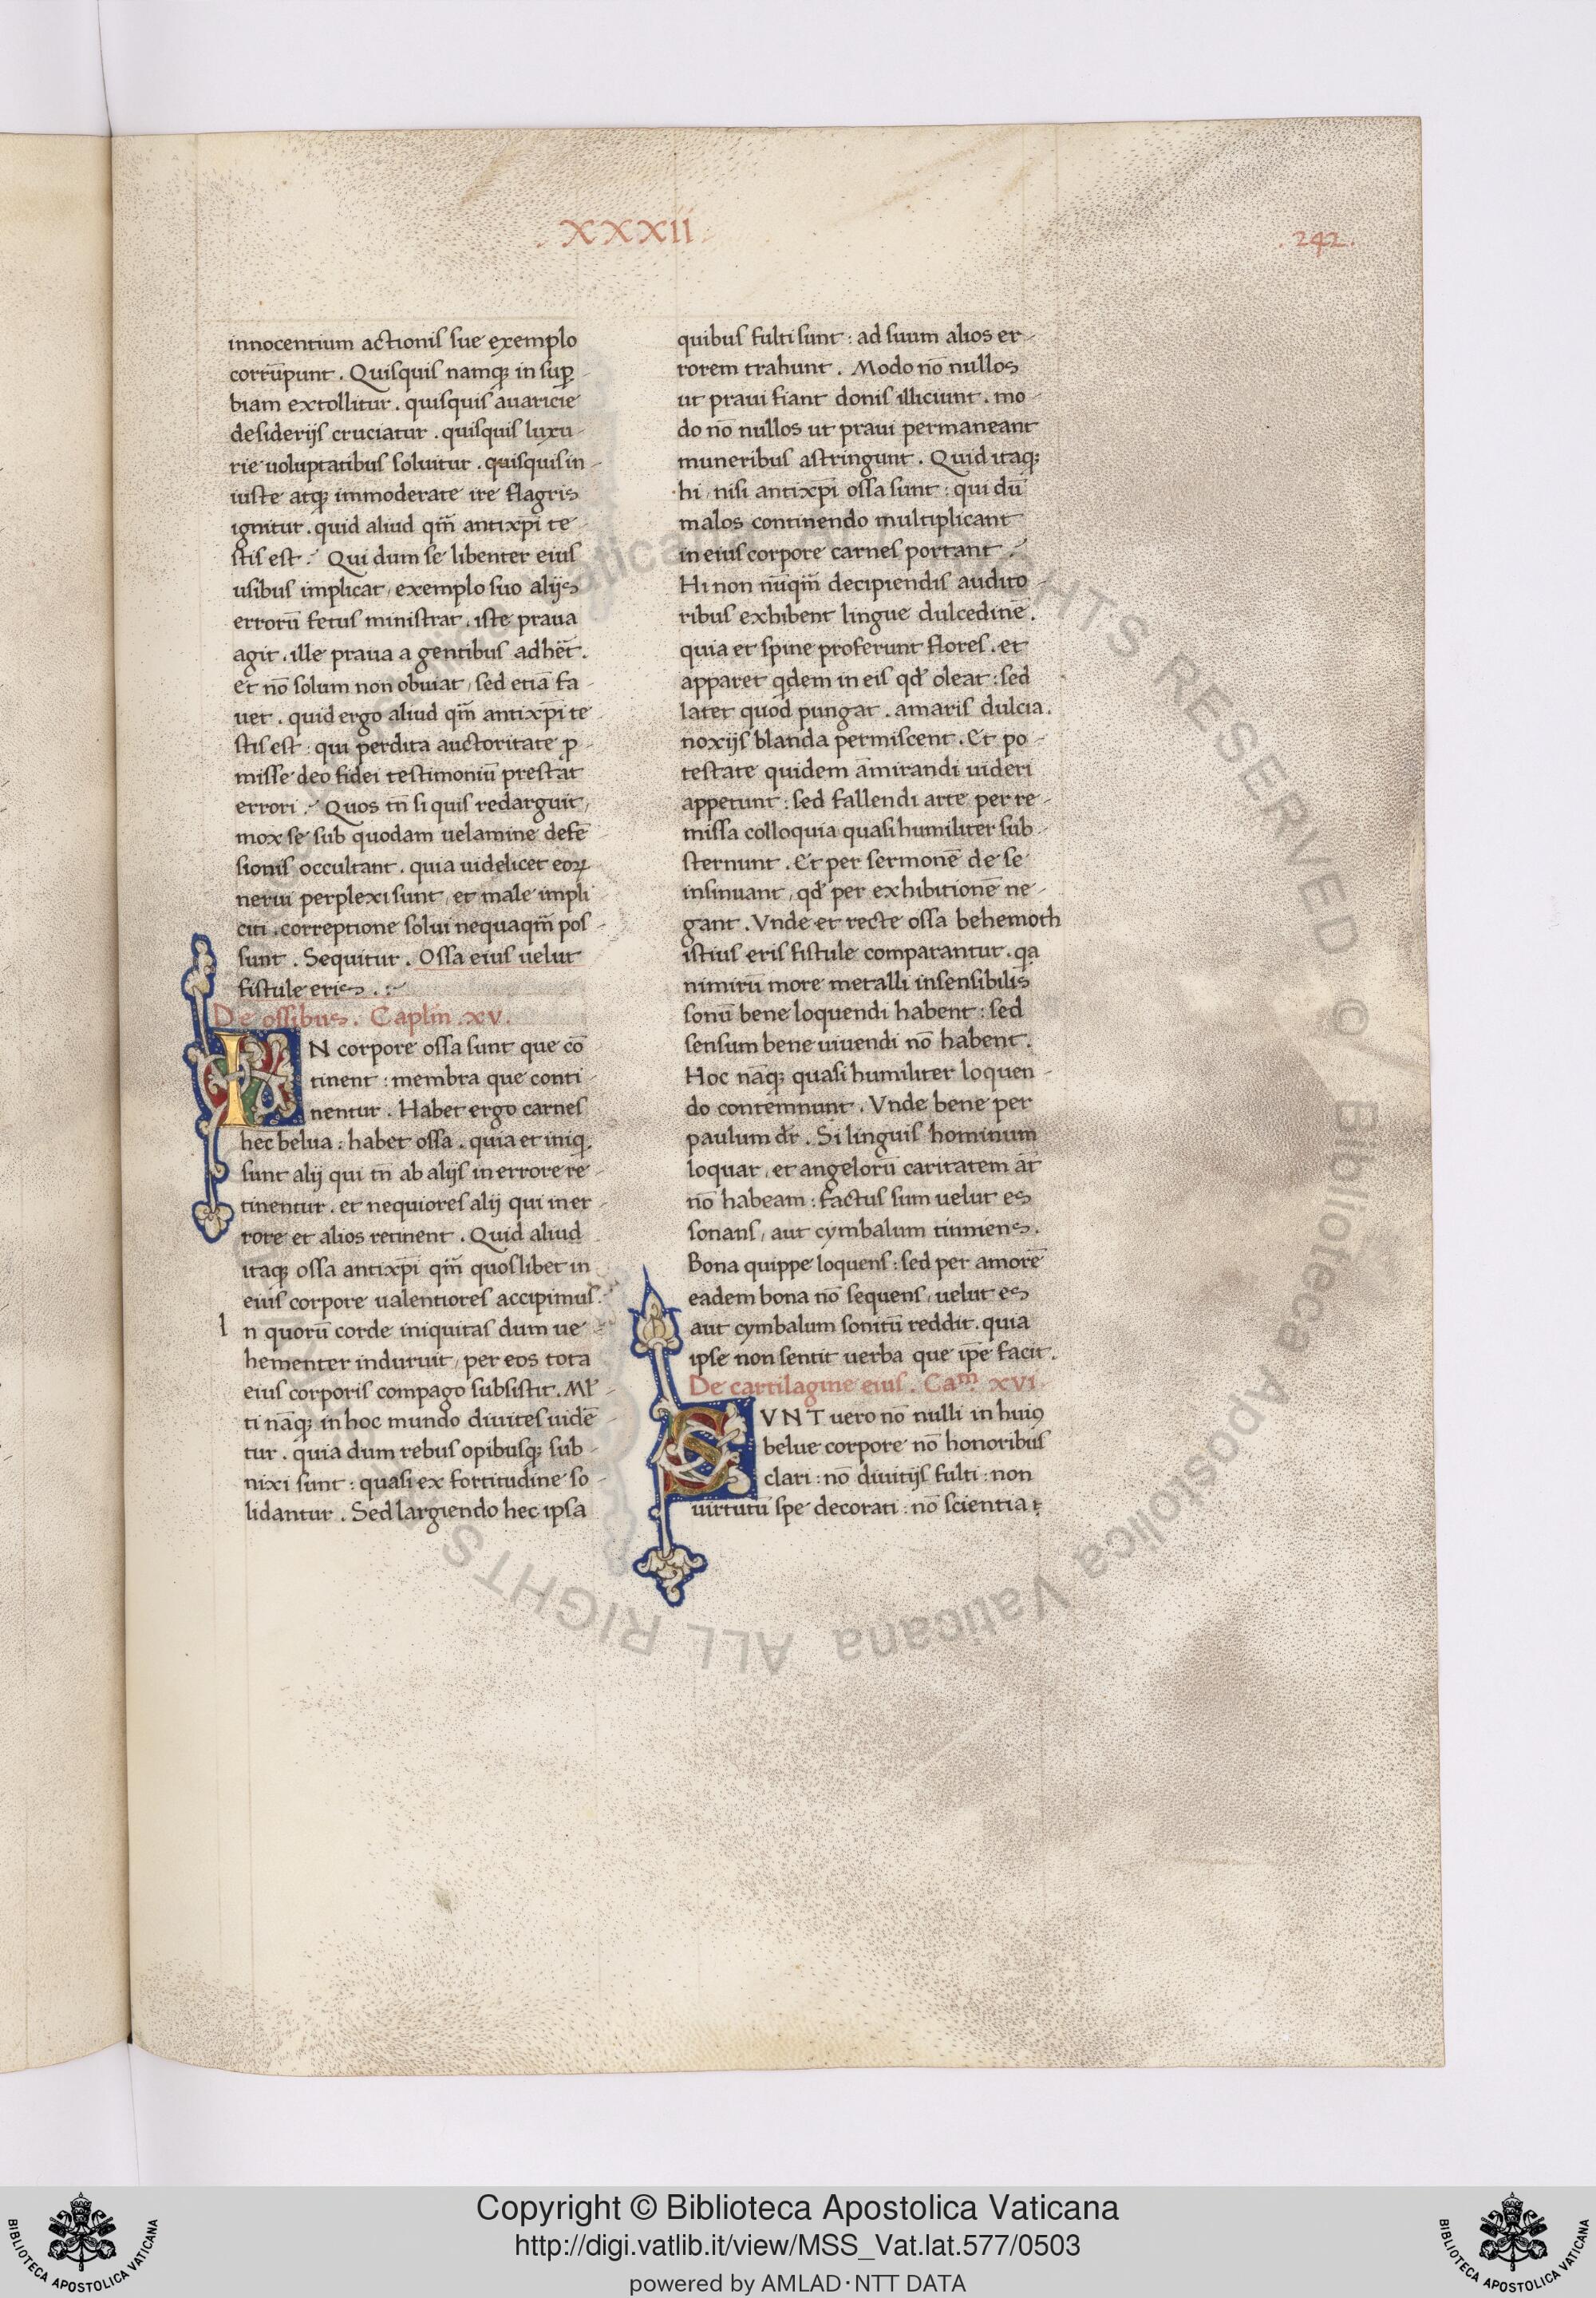 . XXXII .
. 242 .
innocentium actionis sue exemplo
corrūpunt . Quisquis namqꝫ in suꝑ-
biam extollitur . quisquis avaricie
desiderijs cruciatur . quisquis luxu-
rie voluptatibus solvitur . quisquis in-
iuste atqꝫ immoderate ire flagris
ignitur . quid aliud qm̄ antixp̄i te-
stis est . Qui dum se libenter eius
usibus implicat, exemplo suo alijs
errorū fetus ministrat . iste prava
agit . ille prava agentibus adhet̄ .
et nō solum non obviat, sed etiā fa-
vet . quid ergo aliud qm̄ antixp̄i te-
stis est : qui perdita auctoritate ꝓ-
misse deo fidei testimoniū prestat
errori . Quos tn̄ si quis redarguit,
mox se sub quodam velamine defē-
sionis occultant . quia videlicet eoꝝ
nervi perplexi sunt, et male impli
citi . correptione solvi nequaqm̄ pos-
sunt . Sequitur . Ossa eius velut
fistule eris . :~
De ossibus . Caplm̄ . xv .
IN corpore ossa sunt que cō-
tinent : membra que conti-
nentur . Habet ergo carnes
hec belua : habet ossa . quia et iniq̨
sunt alij qui tn̄ ab alijs in errore re-
tinentur . et nequiores alij qui in er-
rore et alios retinent . Quid aliud
itaqꝫ ossa antixp̄i qm̄ quoslibet in
eius corpore valentiores accipimus .
I n quorū corde iniquitas dum ve-
hementer induruit, per eos tota
eius corporis compago subsistit . Ml̄-
ti nāqꝫ in hoc mundo divites vidē-
tur . quia dum rebus opibusqꝫ sub-
nixi sunt : quasi ex fortitudine so-
lidantur . Sed largiendo hec ipsa
quibus fulti sunt : ad suum alios er-
rorem trahunt . Modo nō nullos
ut pravi fiant donis illiciunt . mo-
do nō nullos ut pravi permaneant
muneribus astringunt . Quid itaqꝫ
hi, nisi antixp̄i ossa sunt : qui dū
malos continendo multiplicant
in eius corpore carnes portant .
Hi non nūqm̄ decipiendis audito-
ribus exhibent lingue dulcedinē .
quia et spine proferunt flores . et
apparet qdem in eis qd̄ oleat : sed
latet quod pungat . amaris dulcia .
noxijs blanda permiscent . Et po-
testate quidem āmirandi videri
appetunt : sed fallendi arte per re-
missa colloquia quasi humiliter sub-
sternunt . Et per sermonē de se
insinuant, qd̄ per exhibitionē ne-
gant . Unde et recte ossa behemoth
istius eris fistule comparantur . qa
nimirū more metalli insensibilis
sonū bene loquendi habent : sed
sensum bene vivendi nō habent .
Hoc nāqꝫ quasi humiliter loquen-
do contemnunt . Unde bene per
paulum dr̄ . Si linguis hominum
loquar, et angelorū caritatem at̄
nō habeam : factus sum velut es
sonans, aut cymbalum tinniens .
Bona quippe loquens : sed per amorē
eadem bona nō sequens, velut es
aut cymbalum sonitū reddit . quia
ipse non sentit verba que ip̄e facit .
De cartilagine eius . Caᵐ . xvi .
SUNT vero nō nulli in huiꝰ
belue corpore nō honoribus
clari : nō divitijs fulti : non
virtutū spe decorati : nō scientia ꞇ
ALL RIGHTS RESERVED © Biblioteca Apostolica Vaticana ALL RIGHTS
Copyright © Biblioteca Apostolica Vaticana
http://digi.vatlib.it/view/MSS_Vat.lat.577/0503
powered by AMLAD·NTT DATA
BIBLIOTECA APOSTOLICA VATICANA
BIBLIOTECA APOSTOLICA VATICANA